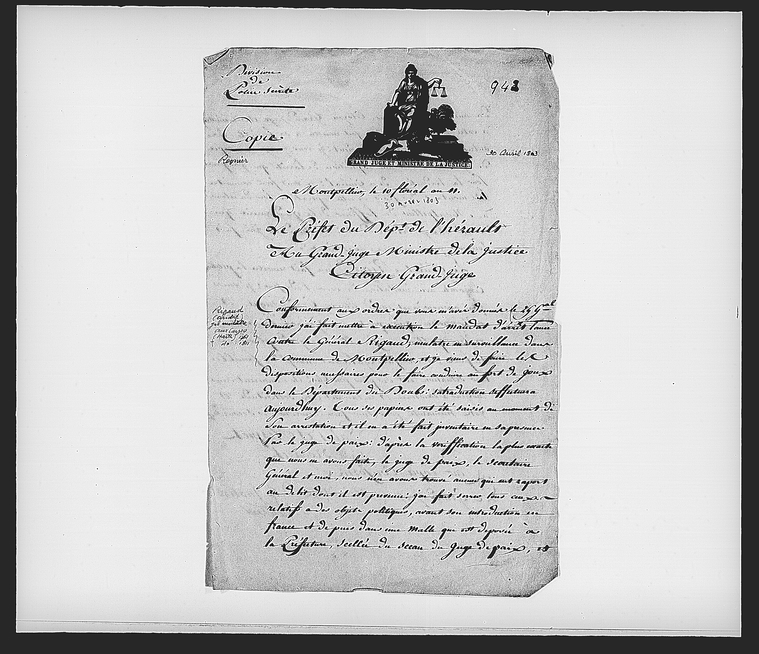 Division
de
Police Secrète
Copie
Regnier
942
GRAND JUGE ET MINISTRE DE LA JUSTICE
30 Avril 1803
Montpellier, le 10 floréal an 11.
30 avril 1803
Le Préfet du Dépt. de l'hérault
Au Grand-Juge Ministre de la Justice
Citoyen Grand-Juge
Rigaud
Conformement aux ordres que vous m'avez donnés le 25 Gal
dernier j'ai fait mettre a execution le mandat d'arrêt lancé
contre le Général Rigaud, mulatre en surveillance dans
la commune de Montpellier, et je viens de faire les
dispositions necessaires pour le faire conduire au fort de Joux
dans le Département du Doubs: sa traduction s'effectuera
aujourdhuy. Tous ses papiers ont été saisis au moment de
son arrestation et il en a été fait inventaire en sa presence
Par le juge de paix: d'après la veriffication la plus exacte
que nous en avons faite, le juge de paix, le secretaire
Général et moi, nous n'en avons trouvé aucun qui eut raport
au délit dont il est prevenu: j'ai fait serrer tous ceux
relatifs a des objets politiques, avant son introduction en
france et depuis dans une malle qui est deposée a
la Préfecture, scellée du sceau du Juge de paix, et